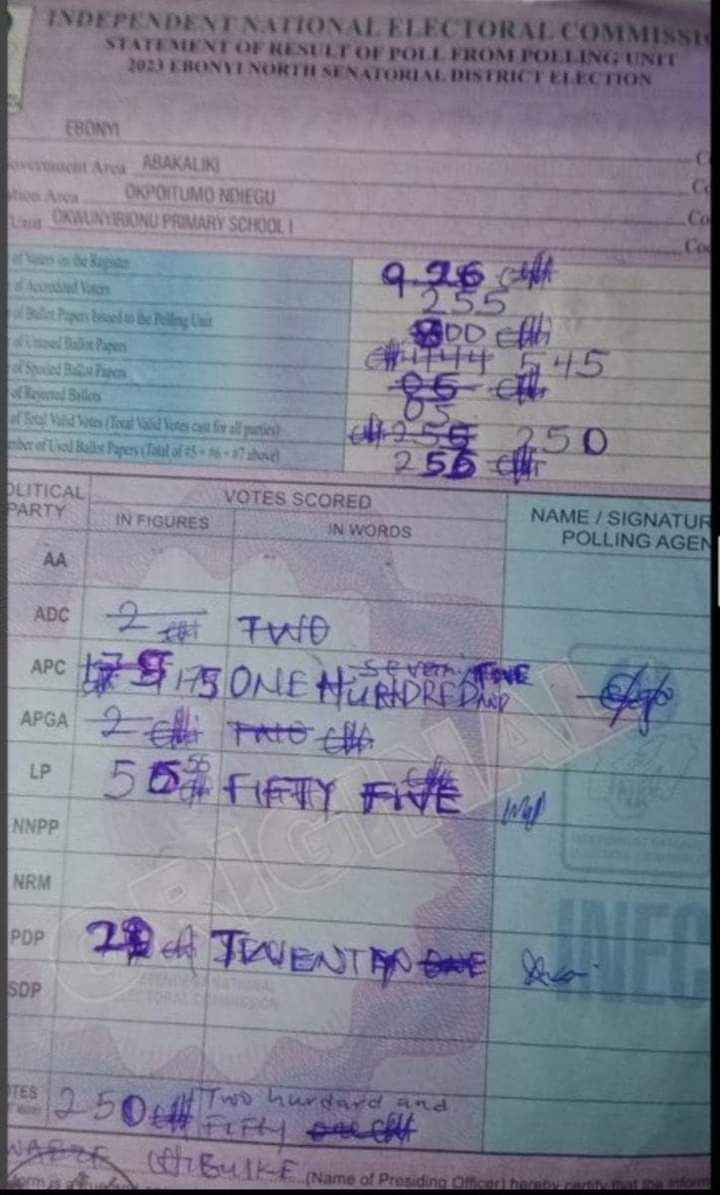 INDEPENDENT NATIONAL ELECTORAL COMMISSI
STATEMENT OF RESULT OF POLL FROM POLLING UNIT
2023 EBONYI NORTH SENATORIAL DISTRICT ELECTION
EBONYI
overnment Area ABAKALIKI
ation Area OKPOITUMO NDIEGU
Unit OKWUNYIRIONU PRIMARY SCHOOL I
of Voters on the Register 926
of Accredited Voters 255
of Ballot Papers Issued to the Polling Unit 800
of Unused Ballot Papers 545
of Spoiled Ballot Papers
of Rejected Ballots 05
of Total Valid Votes (Total Valid Votes cast for all parties) 250
mber of Used Ballot Papers (Total of #5 + #6 + #7 above) 255
OLITICAL PARTY VOTES SCORED NAME / SIGNATUR
IN FIGURES IN WORDS POLLING AGEN
AA
ADC 2 TWO
APC 175 ONE HUNDRED AND Seventy FIVE
APGA 2 TWO
LP 55 FIFTY FIVE
NNPP
NRM
PDP TWENTY ONE
SDP
ORIGINAL
INEC
OTES 250 Two hurdard and
FIFTY one
(Name of Presiding Officer) hereby certify that the inform